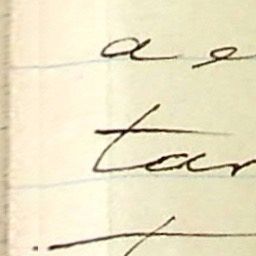 a e
tar